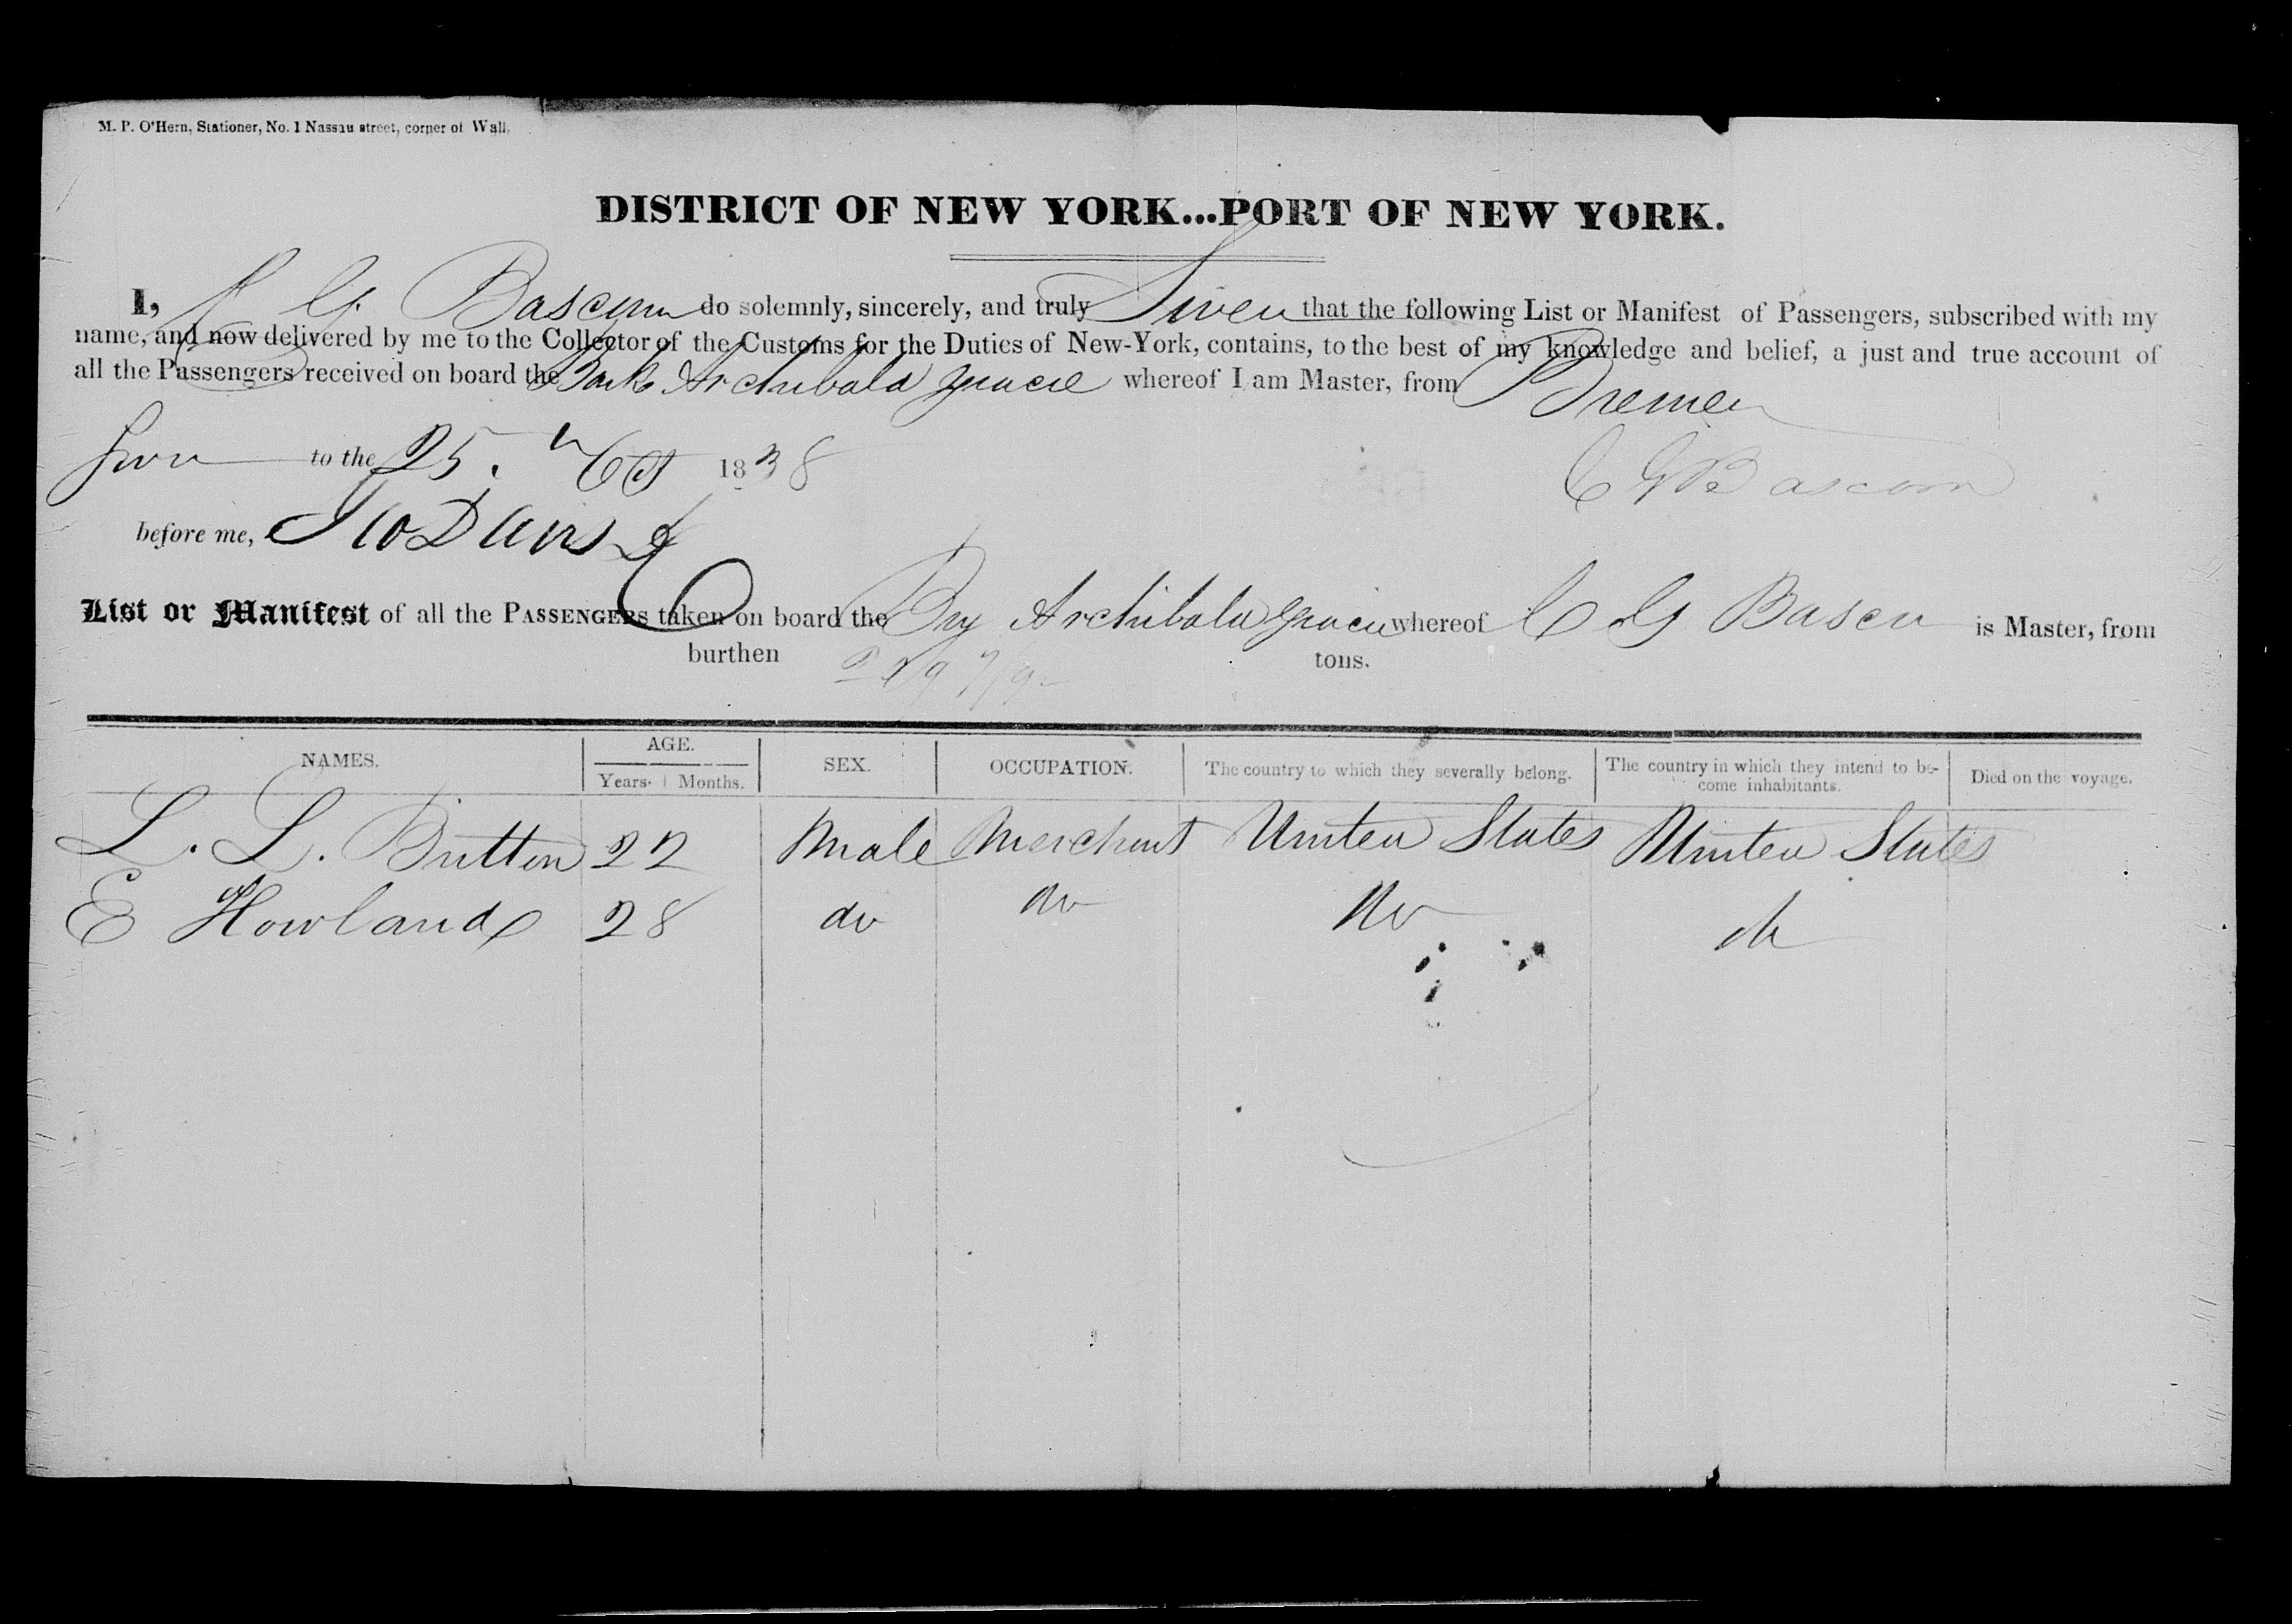 M. P. O'Hern, Stationer, No. 1 Nassau street, corner of Wall.
DISTRICT OF NEW YORK...PORT OF NEW YORK.
I, C G Bascom do solemnly, sincerely, and truly Swear that the following List or Manifest of Passengers, subscribed with my
name, and now delivered by me to the Collector of the Customs for the Duties of New-York, contains, to the best of my knowledge and belief, a just and true account of
all the Passengers received on board the Bark Archibald Gracie whereof I am Master, from Bremen
Sworn to the 25. 1838
C G Bascom
before me,
List or Manifest of all the PASSENGERS taken on board the Archibald Gracie whereof C G Bascom is Master, from
burthen tons.
NAMES. AGE. SEX. OCCUPATION. The country to which they severally belong. The country in which they intend to be-
Years. Months. come inhabitants. Died on the voyage.
L. L. Britton 22 Male Merchant United States United States
E Howland 28 do do do do